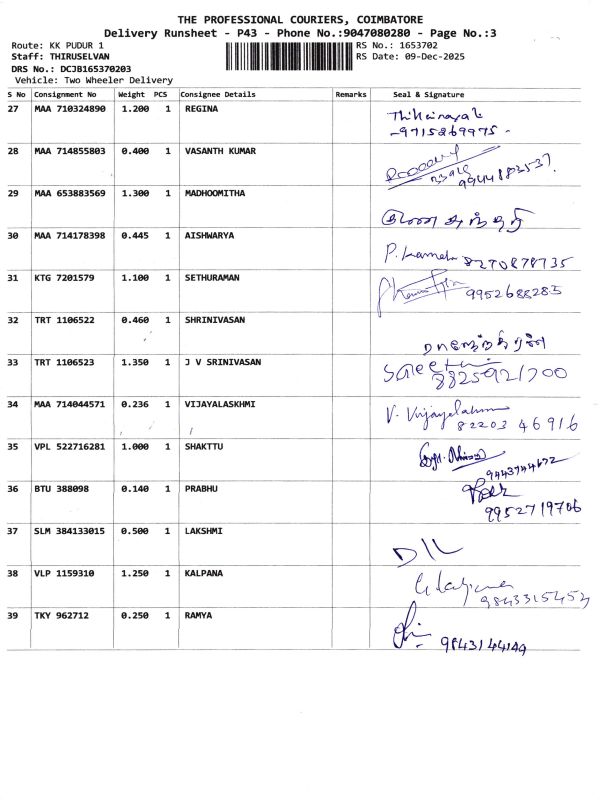 THE PROFESSIONAL COURIERS, COIMBATORE
Delivery Runsheet - P43 - Phone No.:9047080280 - Page No.:3
Route: KK PUDUR 1 RS No.: 1653702
Staff: THIRUSELVAN RS Date: 09-Dec-2025
DRS No.: DCJB165370203
Vehicle: Two Wheeler Delivery
S No Consignment No Weight PCS Consignee Details Remarks Seal & Signature
27 MAA 710324890 1.200 1 REGINA
9715869975
28 MAA 714855803 0.400 1 VASANTH KUMAR
9944882537.
29 MAA 653883569 1.300 1 MADHOOMITHA
30 MAA 714178398 0.445 1 AISHWARYA
8270878735
31 KTG 7201579 1.100 1 SETHURAMAN
9952688285
32 TRT 1106522 0.460 1 SHRINIVASAN
33 TRT 1106523 1.350 1 J V SRINIVASAN
34 MAA 714044571 0.236 1 VIJAYALASKHMI
V. Vijayalakshmi
82203 46916
35 VPL 522716281 1.000 1 SHAKTTU
9443744672
36 BTU 388098 0.140 1 PRABHU
9952719706
37 SLM 384133015 0.500 1 LAKSHMI
38 VLP 1159310 1.250 1 KALPANA
9843315454
39 TKY 962712 0.250 1 RAMYA
9843144149